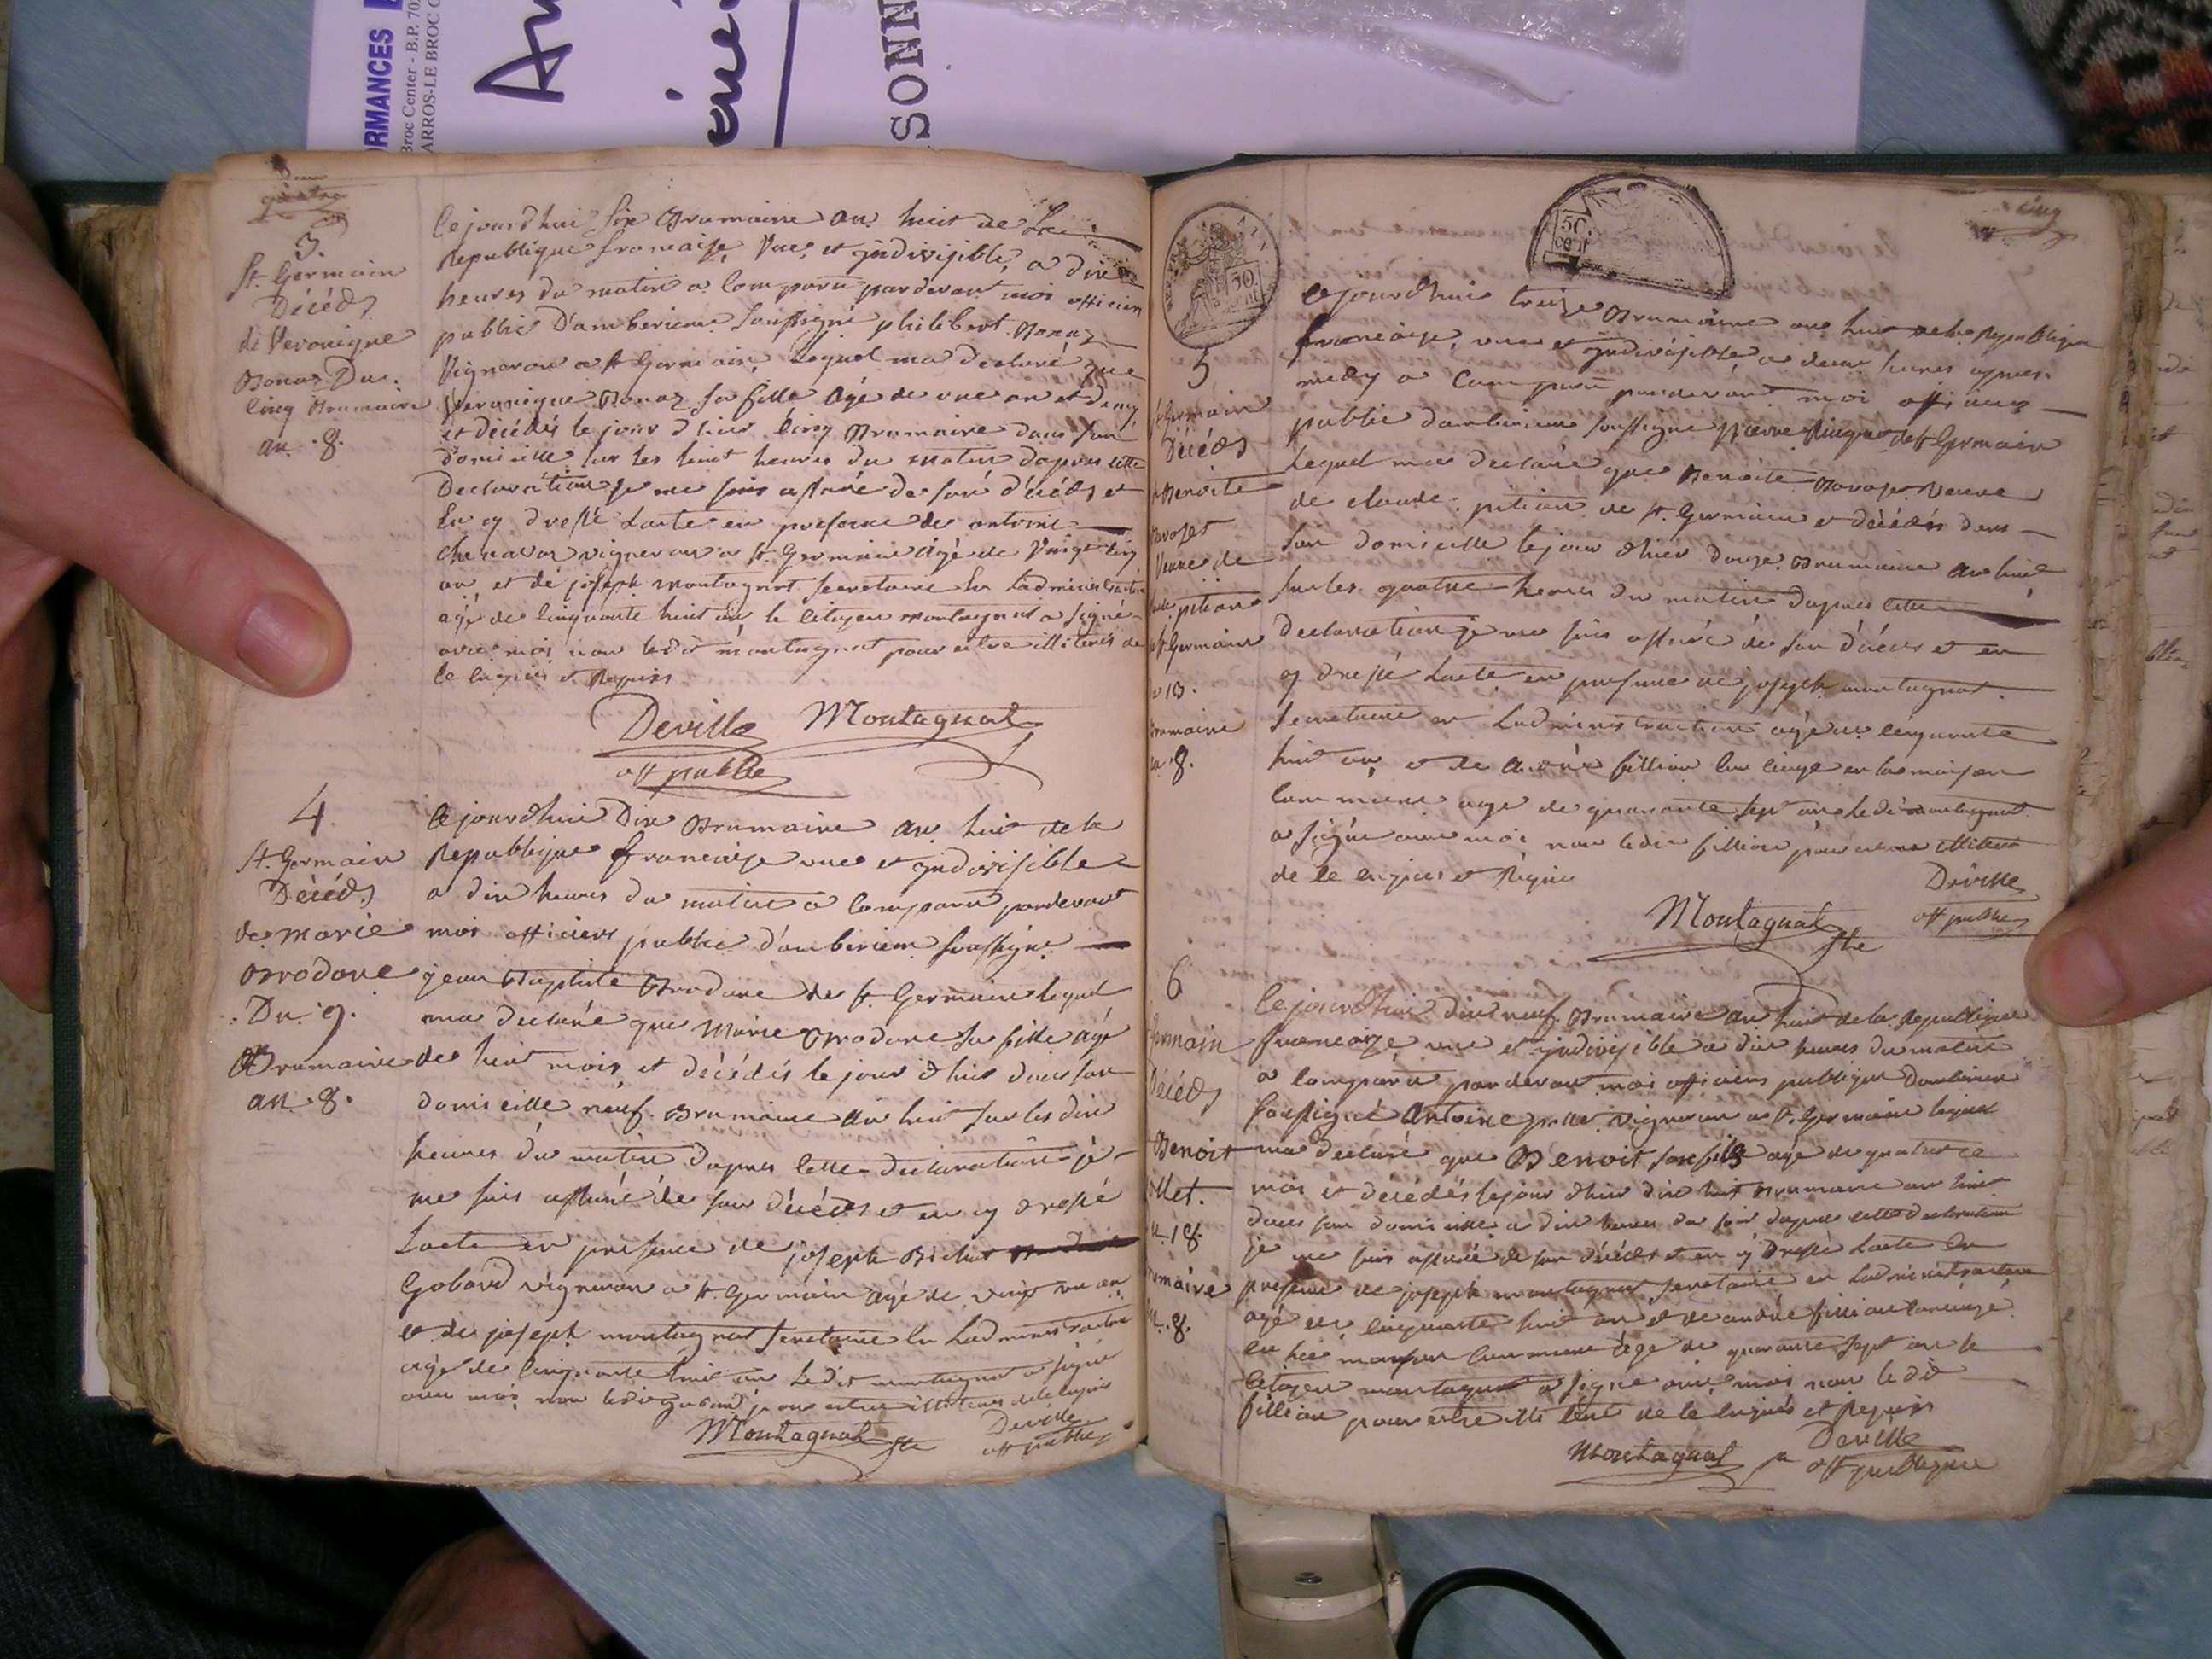 RMANCES
Broc Center - B.P. 70
ARROS-LE BROC C
An
SONN
quatre
3.
St. Germain
Décéds
de Veronique
Bonaz Du
cinq Brumaire
an. 8.
Cejourdhui six Brumaire an huit de la
Republique francaise, Une, et jndivisible, a dix
heures du matin a comparu pardevant moi officier
public D'amberieux soussigné philibert Bonaz
Vigneron a St Germain, Lequel ma declaré que
Veronique Bonaz sa fille Agé de une an et demy
et décédés le jour d'hier cinq Brumaire dans son
domicille sur les huit heures du matin dapres cette
Declaration je me suis assuré de son décéds et
En ay dressé Lacte en presence de antoine
vigneron a St Germain agé de Vingt cinq
an, et de joseph montagnat secretaire En Ladministration
agé de cinquante huit an, le Citoyen montagnat a signé
avec moi non ledit montagnat pour estre illiteres de
ce enquis et Requis
Deville Montagnat
off public
4
St. Germain
Décéds
de marie
Brodone
Du 9.
Brumaire
an 8.
Cejourdhui Dix Brumaire an huit de la
Republique francaise une et jndivisible
a dix heures du matin a comparu pardevant
moi officiers public d'amberieux soussigné
jean Baptiste Brodone de St Germain lequel
ma declaré que Marie Brodone sa fille agé
de huit mois et décédés le jour d'hier dans son
domicille neuf Brumaire an huit sur les dix
heures du matin dapres cette declaration je
me suis assuré de son décéds et en ay dressé
Lacte en presence de joseph
Gobard vigneron a St Germain agé de vingt un an
et de joseph montagnat secretaire En Ladministration
agé de cinquante huit an Ledit montagnat a signé
avec moi non ledit gobard pour estre illiteres de ce enquis
Montagnat Ste Deville
off public
cinq
50
cen
50
5
St Germain
Décéds
Benoite
Bavozet
Veuve de
pitian
St Germain
Du 13.
Brumaire
an 8.
Cejourdhui treize Brumaire an huit de la Republique
francaise, une et jndivisible, a deux heures apres
midy a Comparu pardevant moi officiers
public damberieux soussigné pierre de St Germain
Lequel ma declaré que Benoite veuve
de claude pitian de St. Germain et décédés dans
son domicille le jour d'hier douze Brumaire an huit
sur les quatre heures du matin dapres cette
Declaration je me suis assuré de son décéds et en
ay dressé Lacte en presence de joseph montagnat
secretaire en Ladministration agé de cinquante
huit an, et de André fillion en la maison
commune agé de quarante sept an ledit montagnat
a signé avec moi non ledit fillion pour estre illiteres
de ce enquis et Requis
Deville
Montagnat Ste off public
6
Germain
Décéds
Benoit
llet.
Du. 18.
Brumaire
an. 8.
Cejourdhui dix neuf Brumaire an huit de la Republique
francaize une et jndivisible a dix heures du matin
a comparu pardevant moi officiers publique Damberieux
soussigné Antoine vigneron a St. Germain lequel
ma declaré que Benoit son fils agé de quatorze
mois et décédés le jour d'hier dix huit Brumaire an huit
dans son domicille a dix heures du soir dapres cette declaration
je me suis assuré de son décéds et en ay dressé Lacte En
presence de joseph montagnat secretaire en Ladministration
agé de cinquante huit an et de andré fillion
en la maison commune agé de quarante sept an le
Citoyen montagnat a signé avec moi non ledit
fillion pour estre illiteré de ce enquis et Requis
Montagnat Deville
off publique